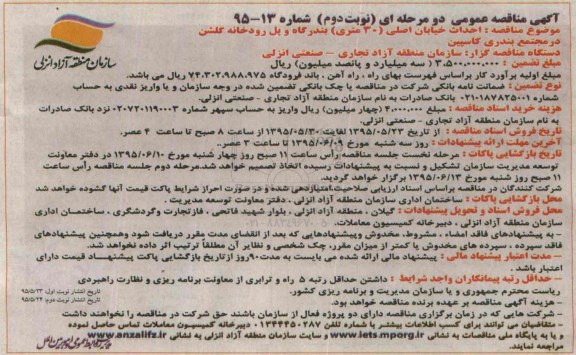 آگهی مناقصه عمومی دو مرحله ای (نوبت دوم) شماره ۱۳-۹۵
موضوع مناقصه : احداث خیابان اصلی (۳۰ متری) بندرگاه و پل رودخانه گلشن
در مجتمع بندری کاسپین
دستگاه مناقصه گزار: سازمان منطقه آزاد تجاری – صنعتی انزلی
مبلغ تضمین : ۳،۵۰۰،۰۰۰،۰۰۰ (سه میلیارد و پانصد میلیون) ریال
مبلغ اولیه برآورد کار براساس فهرست بهای راه ، راه آهن ، باند فرودگاه ۷۴،۳۰۲،۹۸۸،۹۷۵ ریال می باشد.
نوع تضمین : ضمانت نامه بانکی شرکت در مناقصه یا چک بانکی تضمین شده در وجه سازمان و یا واریز نقدی به حساب
شماره ۰۲۱۰۱۸۷۸۲۵۰۰۱ بانک صادرات به نام سازمان منطقه آزاد تجاری - صنعتی انزلی.
هزینه خرید اسناد مناقصه : مبلغ ۴،۰۰۰،۰۰۰ (چهار میلیون) ریال واریز به حساب سپهر شماره ۰۲۰۷۲۰۱۱۹۰۰۳ نزد بانک صادرات
به نام سازمان منطقه آزاد تجاری - صنعتی انزلی.
تاریخ فروش اسناد مناقصه : از تاریخ ۱۳۹۵/۰۵/۲۳ لغایت ۱۳۹۵/۰۵/۳۰ از ساعت ۸ صبح تا ساعت ۴ عصر.
آخرین مهلت ارائه پیشنهادات : روز سه شنبه مورخ ۱۳۹۵/۰۶/۰۹ تا ساعت ۳ عصر.
تاریخ بازگشایی پاکات : مرحله نخست جلسه مناقصه رأس ساعت ۱۱ صبح روز چهار شنبه مورخ ۱۳۹۵/۰۶/۱۰ در دفتر معاونت
توسعه مدیریت سازمان تشکیل و نسبت به پیشنهادات رسیده اتخاذ تصمیم خواهد شد.مرحله دوم جلسه مناقصه رأس ساعت
۱۱ صبح روز شنبه مورخ ۱۳۹۵/۰۶/۱۳ برگزار خواهد گردید.
شرکت کنندگان در مناقصه براساس اسناد ارزیابی صلاحیت امتیازدهی شده و در صورت احراز شرایط پاکت قیمت آنها گشوده خواهد شد
محل بازگشایی پاکات : ساختمان اداری سازمان منطقه آزاد انزلی ، دفتر معاونت توسعه مدیریت .
محل فروش اسناد و تحویل پیشنهادات : گیلان ، منطقه آزاد انزلی ، بلوار شهید فاتحی ، فاز تجارت و گردشگری ، ساختمان اداری
سازمان منطقه آزاد انزلی ، دبیرخانه کمیسیون معاملات.
- به پیشنهادهای فاقد امضاء ، مشروط، مخدوش وپیشنهادهایی که بعد از انقضای مدت مقرر دریافت شود وهمچنین پیشنهادهای
فاقد سپرده ، سپرده های مخدوش یا کمتر از میزان مقرر، چک شخصی و نظایر آن مطلقاً ترتیب اثر داده نخواهد شد.
– مدت اعتبار پیشنهاد مالی : پیشنهاد مالی ارائه شده می بایست به مدت ۹۰روز ازتاریخ بازگشایی پاکت پیشنهاد قیمت دارای
اعتبار باشد .
– حداقل رتبه پیمانکاران واجد شرایط : داشتن حداقل رتبه ۵ راه و ترابری از معاونت برنامه ریزی و نظارت راهبردی
ریاست محترم جمهوری و یا سازمان مدیریت و برنامه ریزی کشور.
- هزینه آگهی مناقصه بر عهده برنده مناقصه خواهد بود.
- شرکت هایی که در زمان برگزاری مناقصه دارای دو پروژه فعال از سازمان باشند حق شرکت در مناقصه را نخواهند داشت
- متقاضیان می توانند برای کسب اطلاعات بیشتر با شماره تلفن ۰۱۳۴۴۴۵۰۲۸۷ دبیرخانه کمیسیون معاملات تماس حاصل نموده
و یا به پایگاه ملی مناقصات به نشانی www.iets.mporg.ir و وب سایت سازمان منطقه آزاد انزلی به نشانی www.anzalifz.ir
مراجعه نمایند.
سازمان منطقه آزاد انزلی
تاریخ انتشار نوبت اول: ۹۵/۵/۲۳
تاریخ انتشار نوبت دوم: ۹۵/۵/۲۴